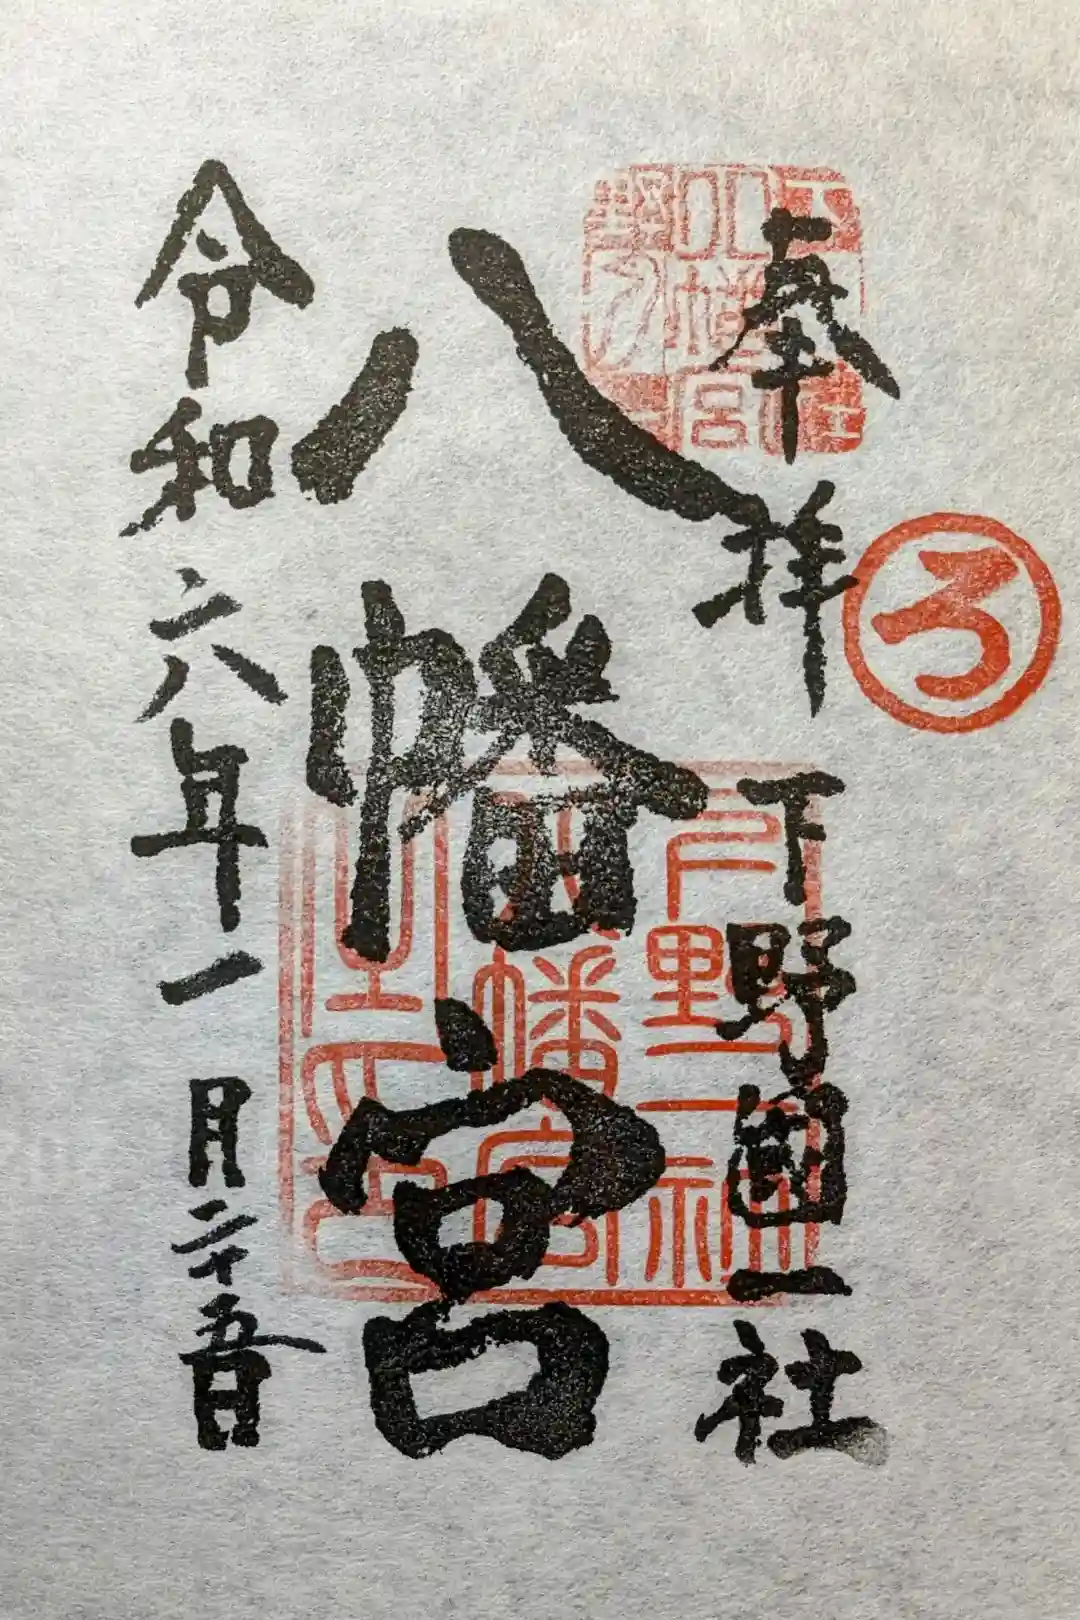 奉拝
下野國一社
ろ
八幡宮
下野一社
八幡宮
八幡宮
令和六年一月二十五日